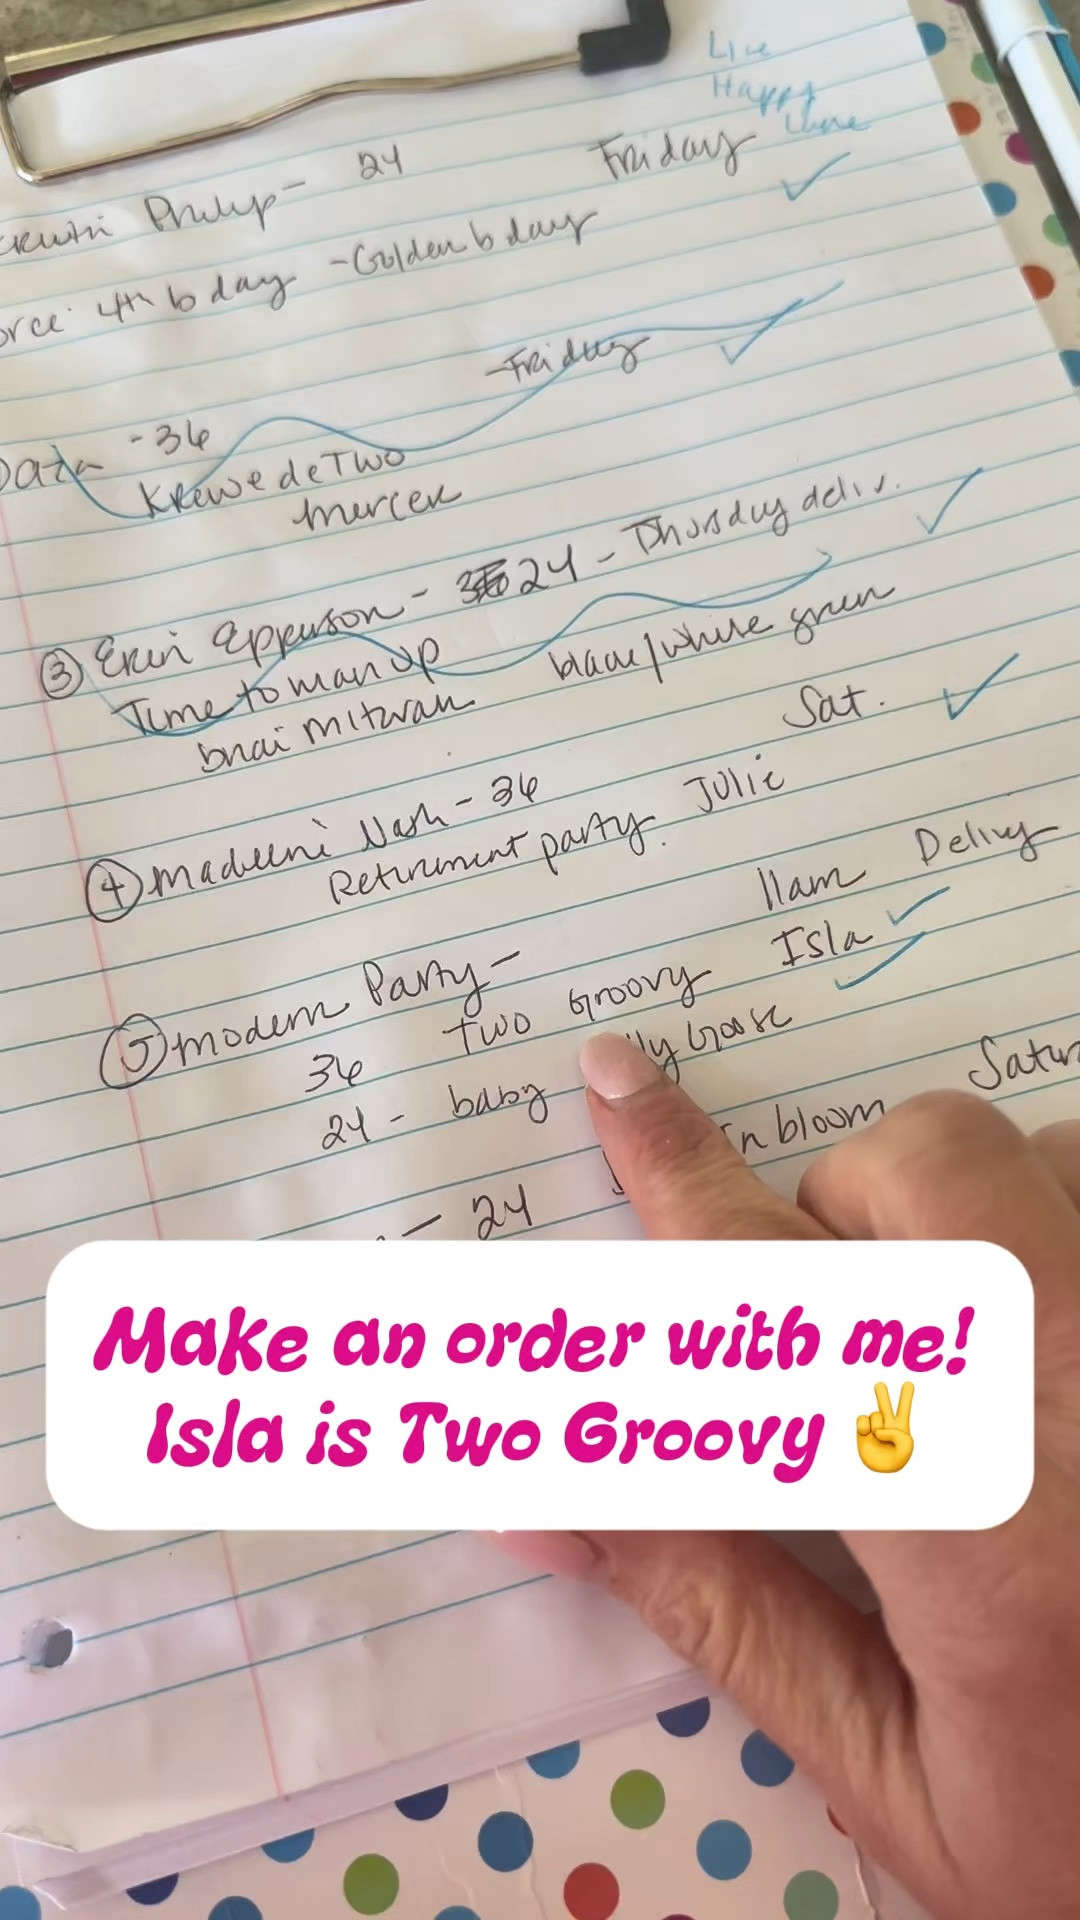 Live
Happy
24 Friday
4th bday - Golden bday
- Friday
Data - 36
Krewe de Two
Mercer
③ Erin Epperson - 24 - Thursday deliv.
Time to man up
bnai mitzvah black/white green
Sat.
④ Nash - 36
Retirement party. Julie
11am Delivy
⑤ Modern Party - Isla
36 Two Groovy
24 - baby Goose
In bloom Satur
- 24
Make an order with me!
Isla is Two Groovy ✌️